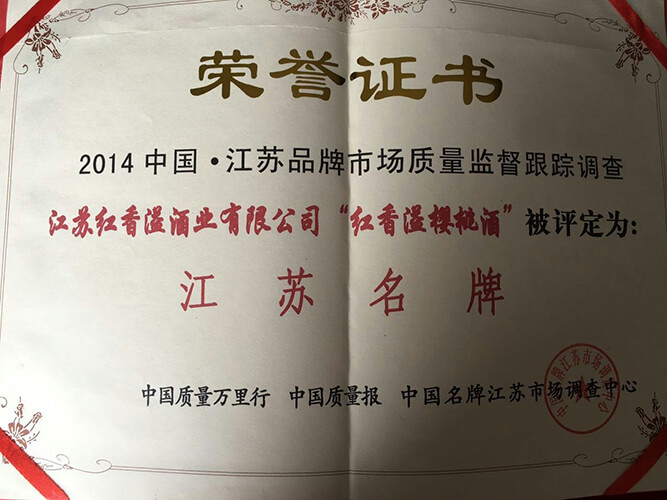 荣誉证书
2014中国·江苏品牌市场质量监督跟踪调查
江苏红香溢酒业有限公司“红香溢樱桃酒”被评定为:
江苏名牌
中国质量万里行 中国质量报 中国名牌江苏市场调查中心
中国名牌江苏市场调查中心